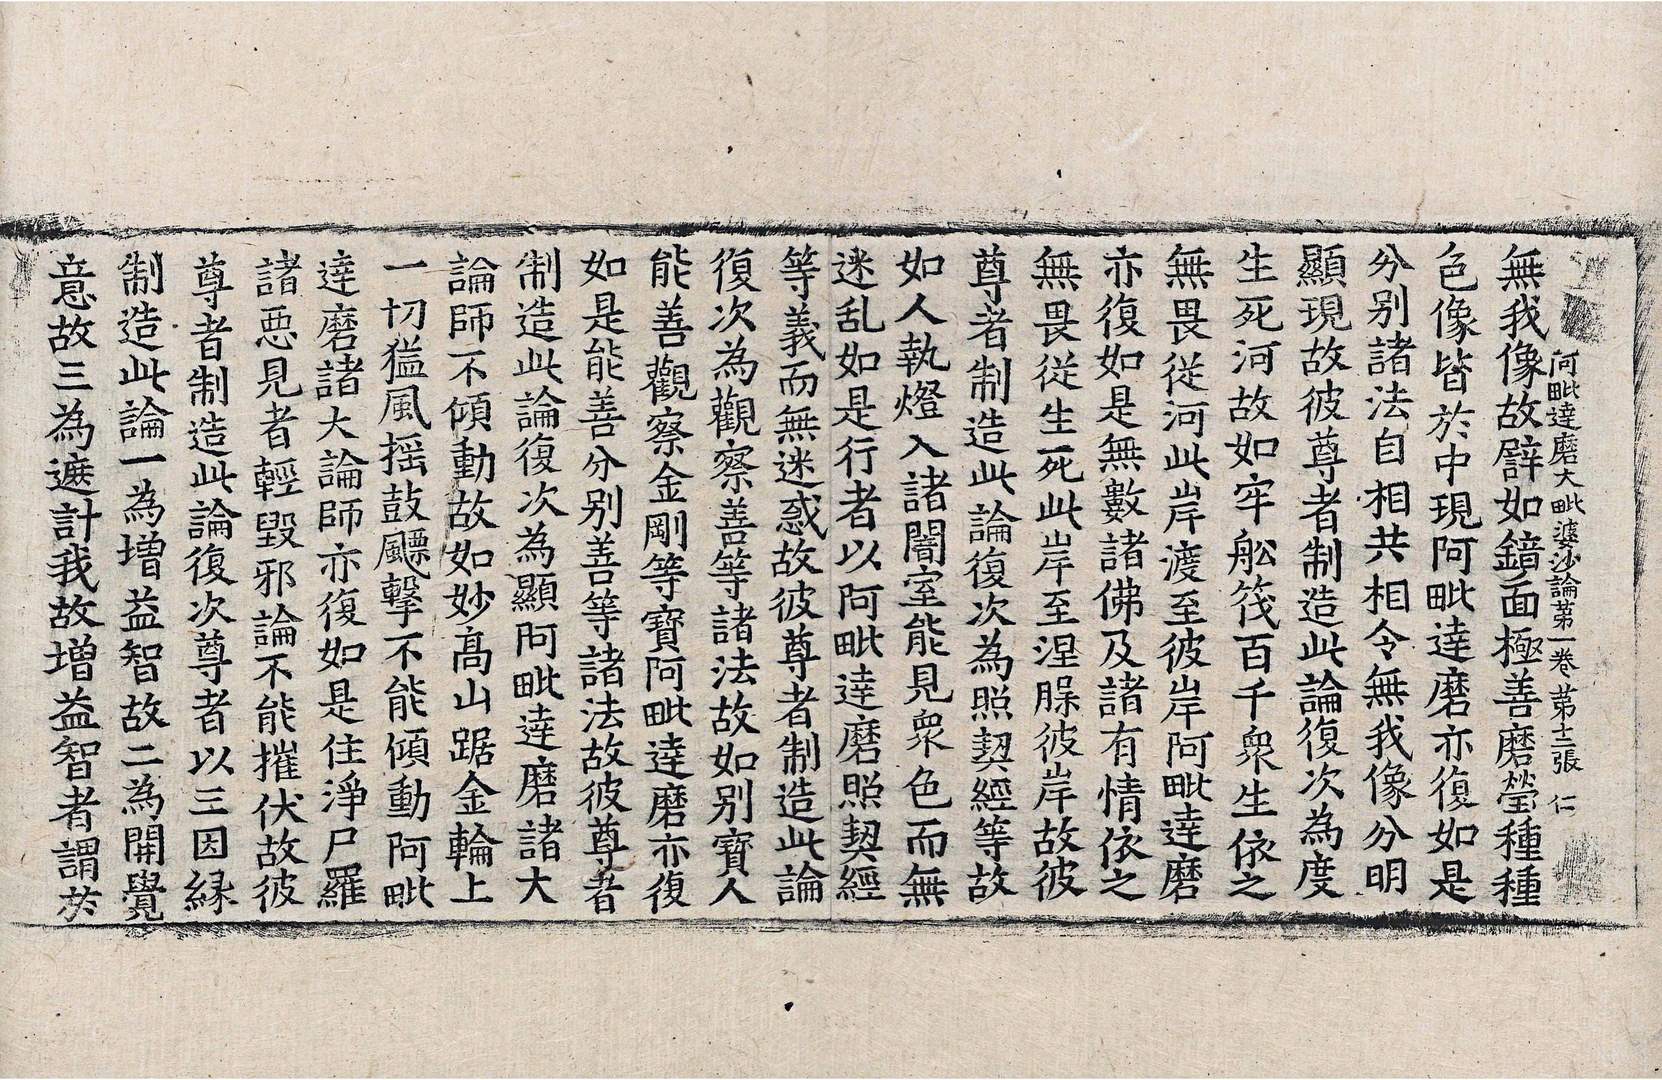 阿毗達磨大毗婆沙論第一卷 第十二張 仁
無我像故譬如鏡面極善磨瑩種種
色像皆於中現阿毗達磨亦復如是
分别諸法自相共相令無我像分明
顯現故彼尊者制造此論復次為度
生死河故如牢舩筏百千衆生依之
無畏從河此岸渡至彼岸阿毗達磨
亦復如是無數諸佛及諸有情依之
無畏從生死此岸至涅槃彼岸故彼
尊者制造此論復次為照契經等故
如人執燈入諸闇室能見衆色而無
迷乱如是行者以阿毗達磨照契經
等義而無迷惑故彼尊者制造此論
復次為觀察善等諸法故如别寶人
能善觀察金剛等寶阿毗達磨亦復
如是能善分别善等諸法故彼尊者
制造此論復次為顯阿毗達磨諸大
論師不傾動故如妙高山踞金輪上
一切猛風摇鼓飄擊不能傾動阿毗
達磨諸大論師亦復如是住淨尸羅
諸惡見者輕毀邪論不能摧伏故彼
尊者制造此論復次尊者以三因縁
制造此論一為增益智故二為開覺
意故三為遮計我故增益智者謂於